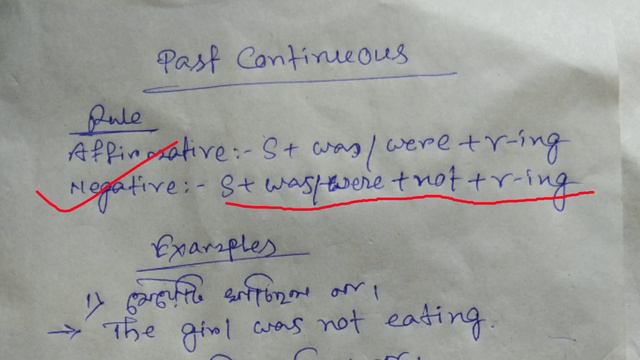 Past Continuous
Rule
Affirmative:- S + was/were + v-ing
Negative:- S + was/were + not + v-ing
Examples
1) মেয়েটি খাচ্ছিল না।
→ The girl was not eating.